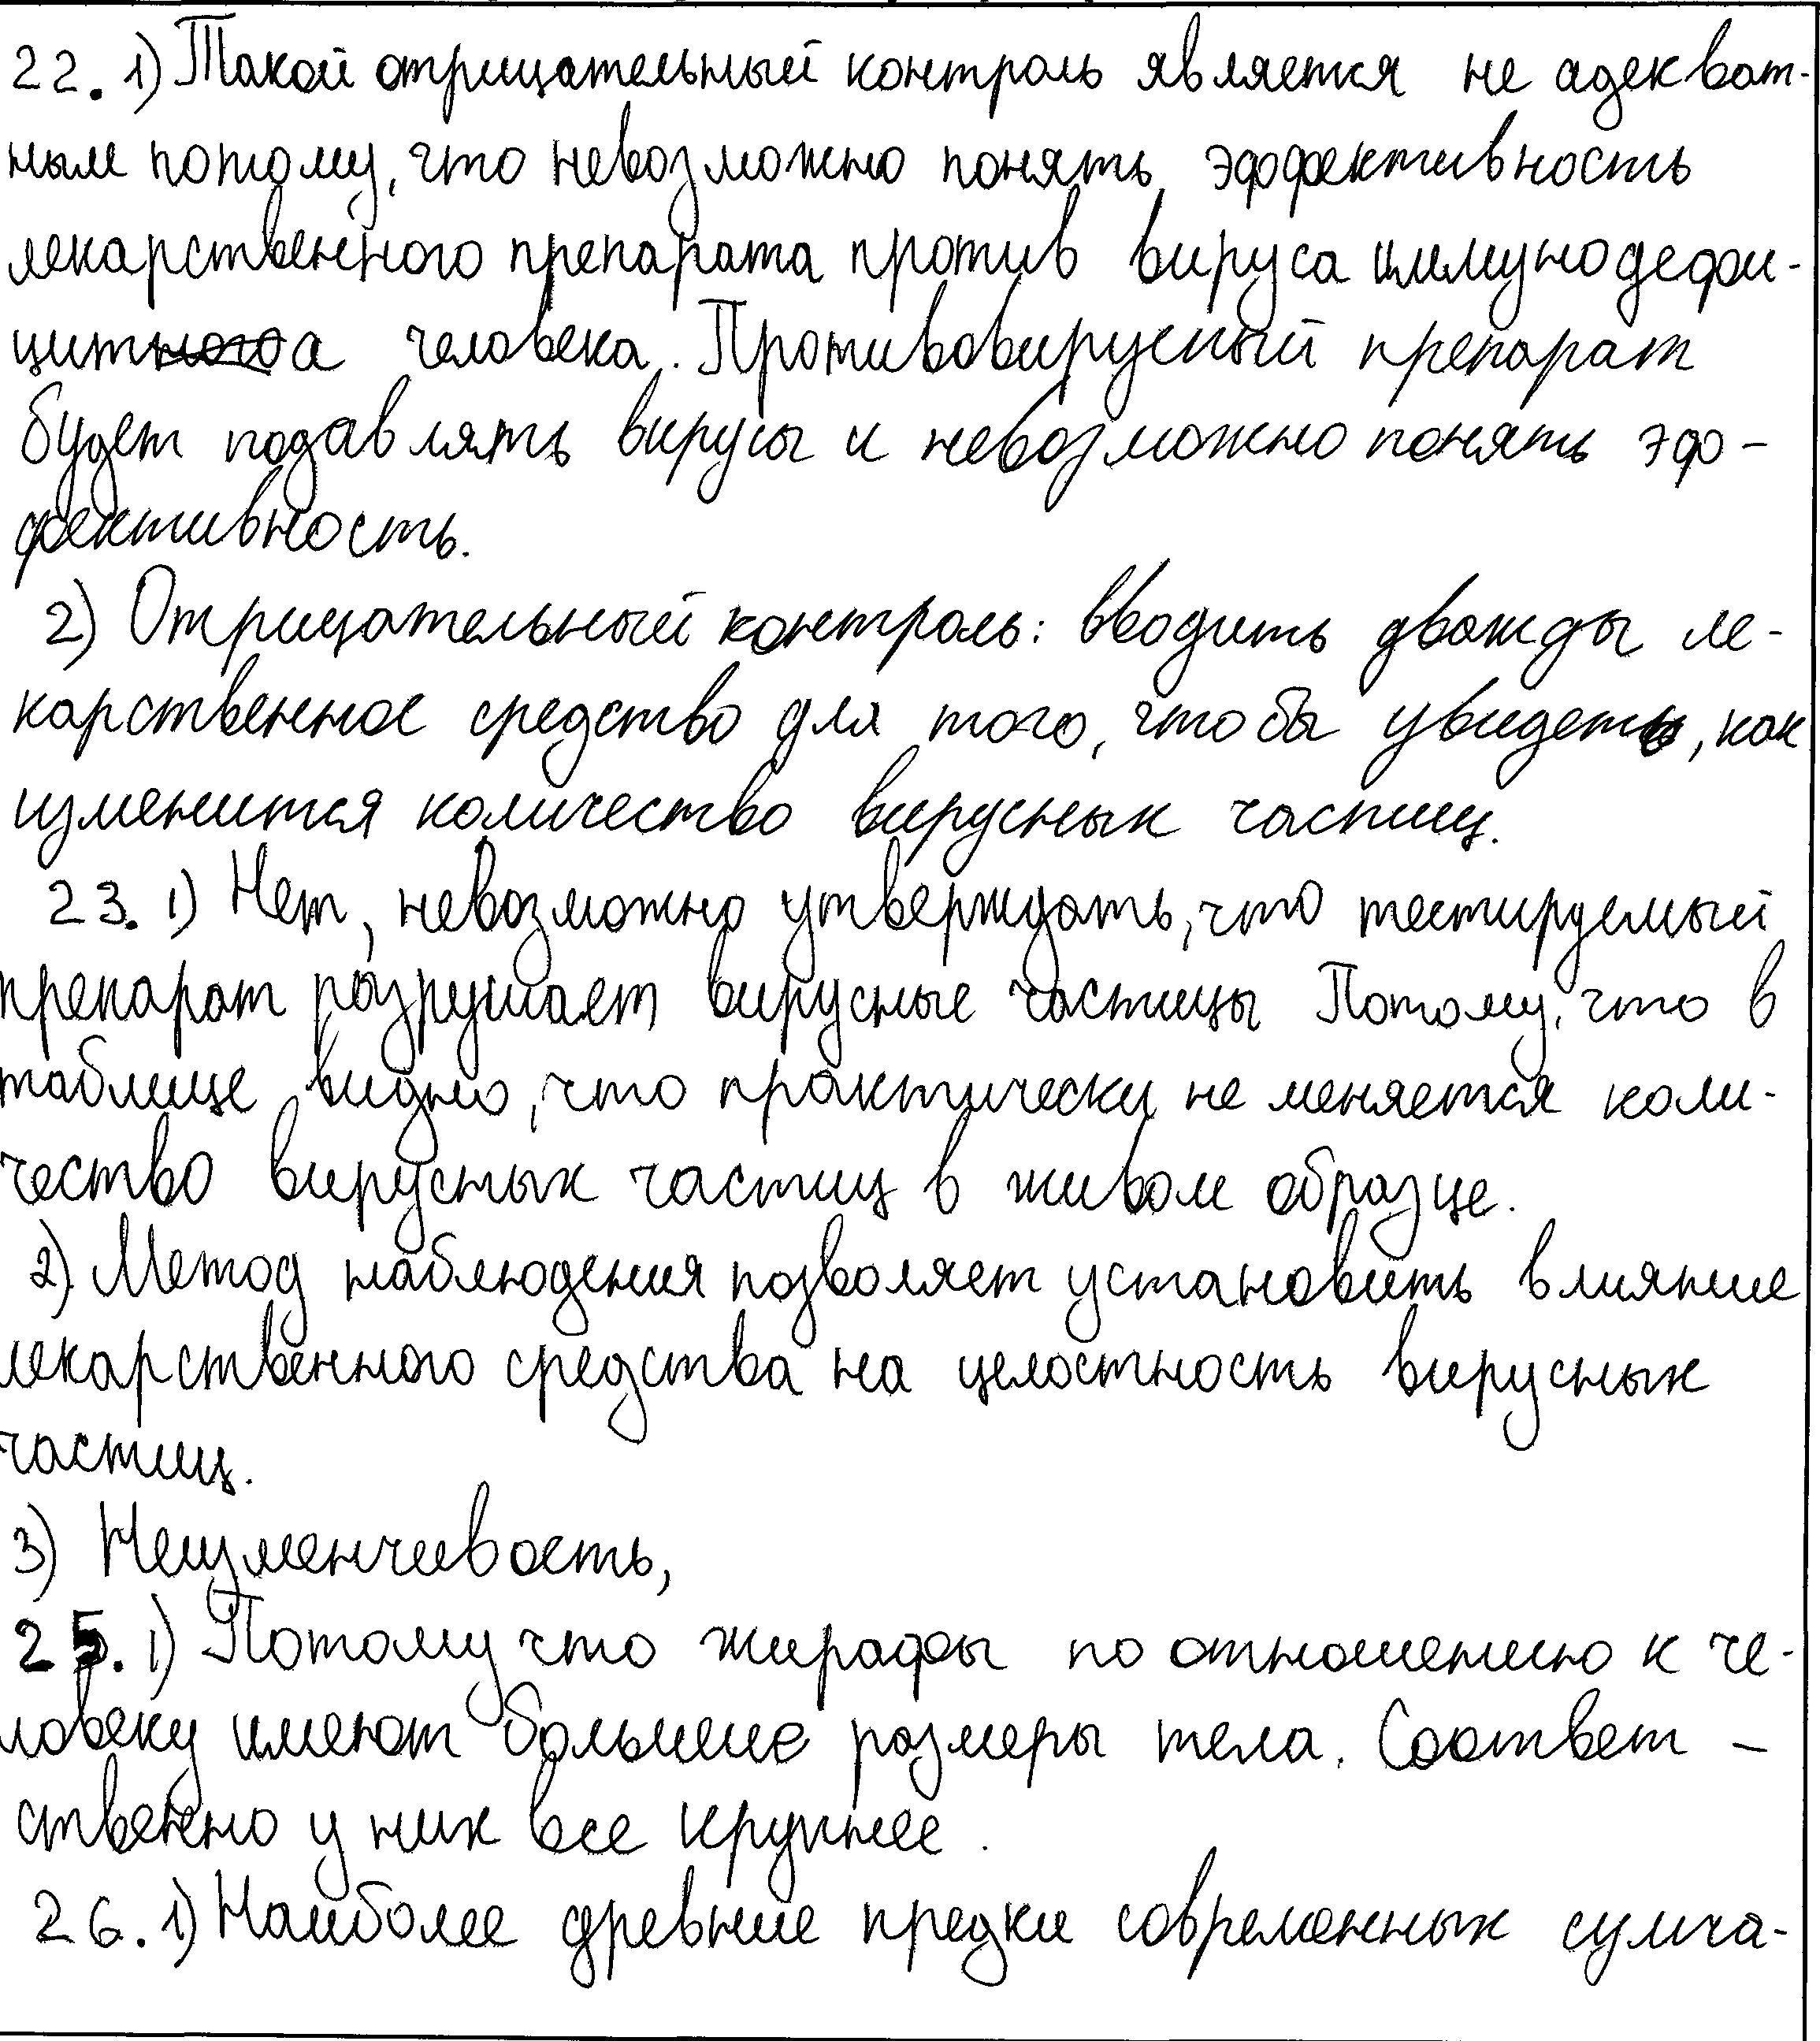 22. 1) Такой отрицательный контроль является не адекват-
ным потому, что невозможно понять эффективность
лекарственного препарата против вируса иммунодефи-
цита человека. Противовирусный препарат
будет подавлять вирусы и невозможно понять эф-
фективность.
2) Отрицательный контроль: вводить дважды ле-
карственное средство для того, чтобы увидеть, как
изменится количество вирусных частиц.
23. 1) Нет, невозможно утверждать, что тестируемый
препарат разрушает вирусные частицы Потому, что в
таблице видно, что практически не меняется коли-
чество вирусных частиц в живом образце.
2) Метод наблюдения позволяет установить влияние
лекарственного средства на целостность вирусных
частиц.
3) Неизменчивость,
25. 1) Потому что жирафы по отношению к че-
ловеку имеют большие размеры тела. Соответ-
ственно у них все крупнее.
26. 1) Наиболее древние предки современных сумча-